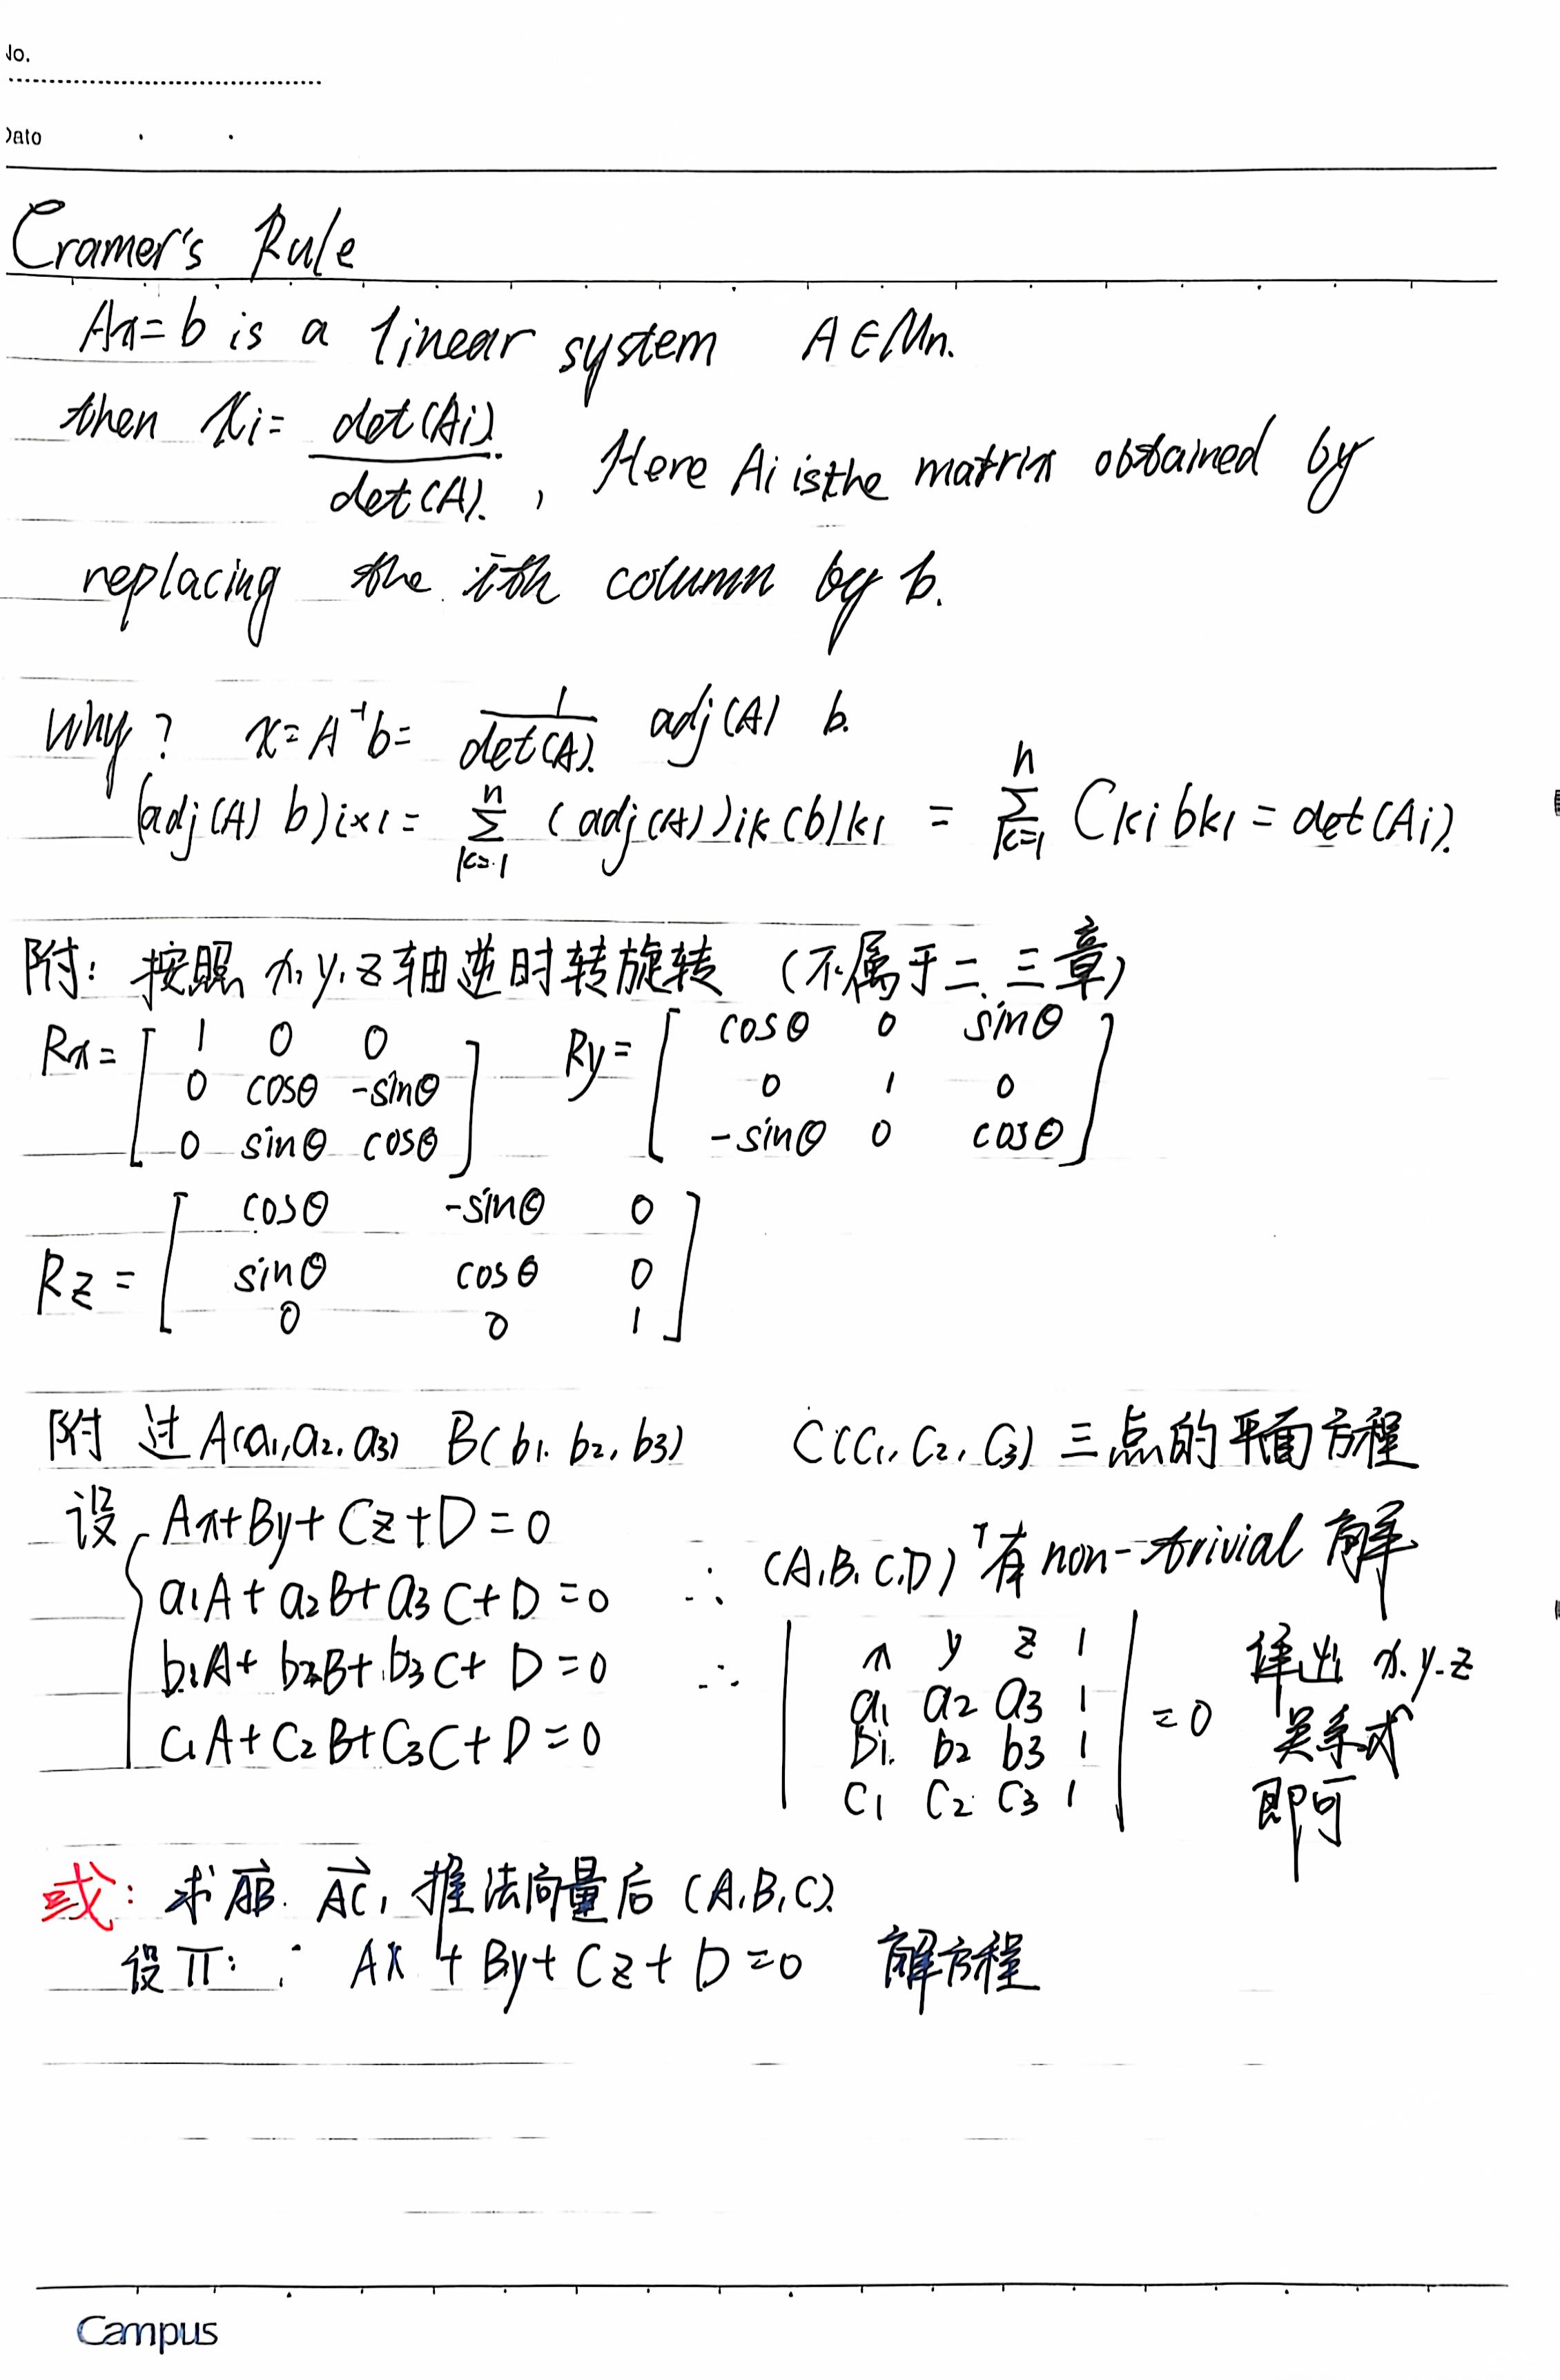 No.
Date
Cramer's Rule
Ax=b is a linear system A∈Mn.
then xi = det(Ai) / det(A), Here Ai is the matrix obtained by
replacing the ith column by b.
Why? x=A⁻¹b= 1/det(A) adj(A) b.
(adj(A) b)i×1 = Σ_{k=1}^{n} (adj(A))ik (b)k1 = Σ_{k=1}^{n} Cki bk1 = det(Ai).
附: 按照 x,y,z 轴逆时转旋转 (不属于二、三章)
Rx = [ 1 0 0
0 cosθ -sinθ
0 sinθ cosθ ]
Ry = [ cosθ 0 sinθ
0 1 0
-sinθ 0 cosθ ]
Rz = [ cosθ -sinθ 0
sinθ cosθ 0
0 0 1 ]
附 过 A(a1,a2,a3) B(b1,b2,b3) C(C1,C2,C3) 三点的平面方程
设 { Ax+By+Cz+D=0
a1A+a2B+a3C+D=0
b1A+b2B+b3C+D=0
C1A+C2B+C3C+D=0
∴ (A,B,C,D)ᵀ有 non-trivial 解
∴ | x y z 1
a1 a2 a3 1
b1 b2 b3 1
C1 C2 C3 1 | =0
出 x.y.z
关系式
即可
或: 求 AB→. AC→, 推法向量后 (A,B,C).
设 Π: Ax+By+Cz+D=0 解方程
Campus